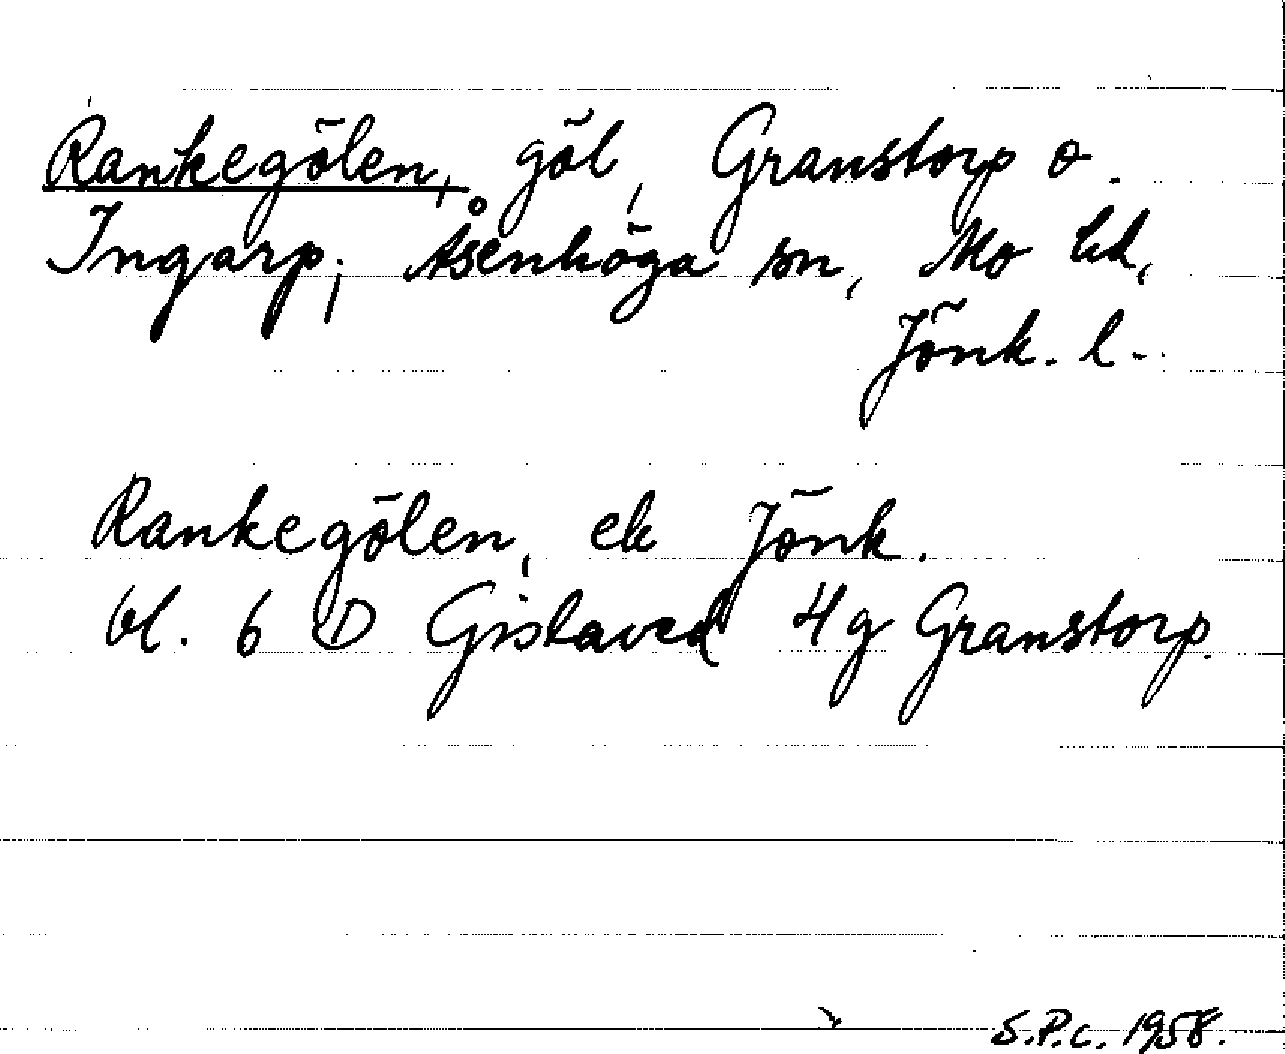 Rankegölen, göl, Granstorp o.
Ingarp, Åsenhöga sn, Mo hd,
Jönk. l.
Rankegölen, ek Jönk.
bl. 6 D Gislaved 4g Granstorp.
S.P.c. 1958.